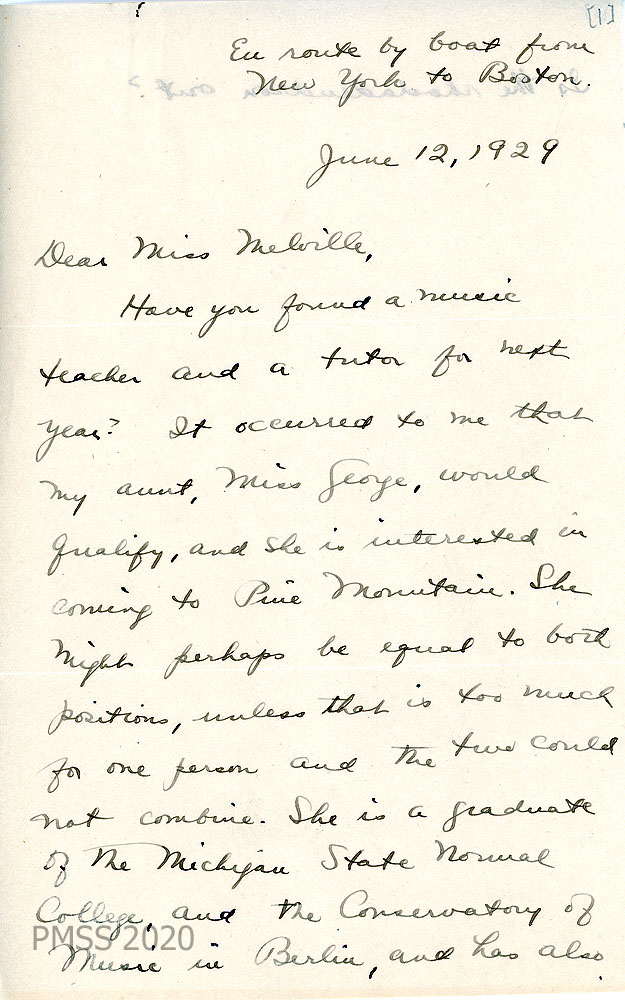 [1]
En route by boat from
New York to Boston.
June 12, 1929
Dear Miss Melville,
Have you found a music
teacher and a tutor for next
year? It occurred to me that
my aunt, Miss George, would
qualify, and she is interested in
coming to Pine Mountain. She
might perhaps be equal to both
positions, unless that is too much
for one person and the two could
not combine. She is a graduate
of the Michigan State Normal
College, and the Conservatory of
Music in Berlin, and has also
PMSS 2020